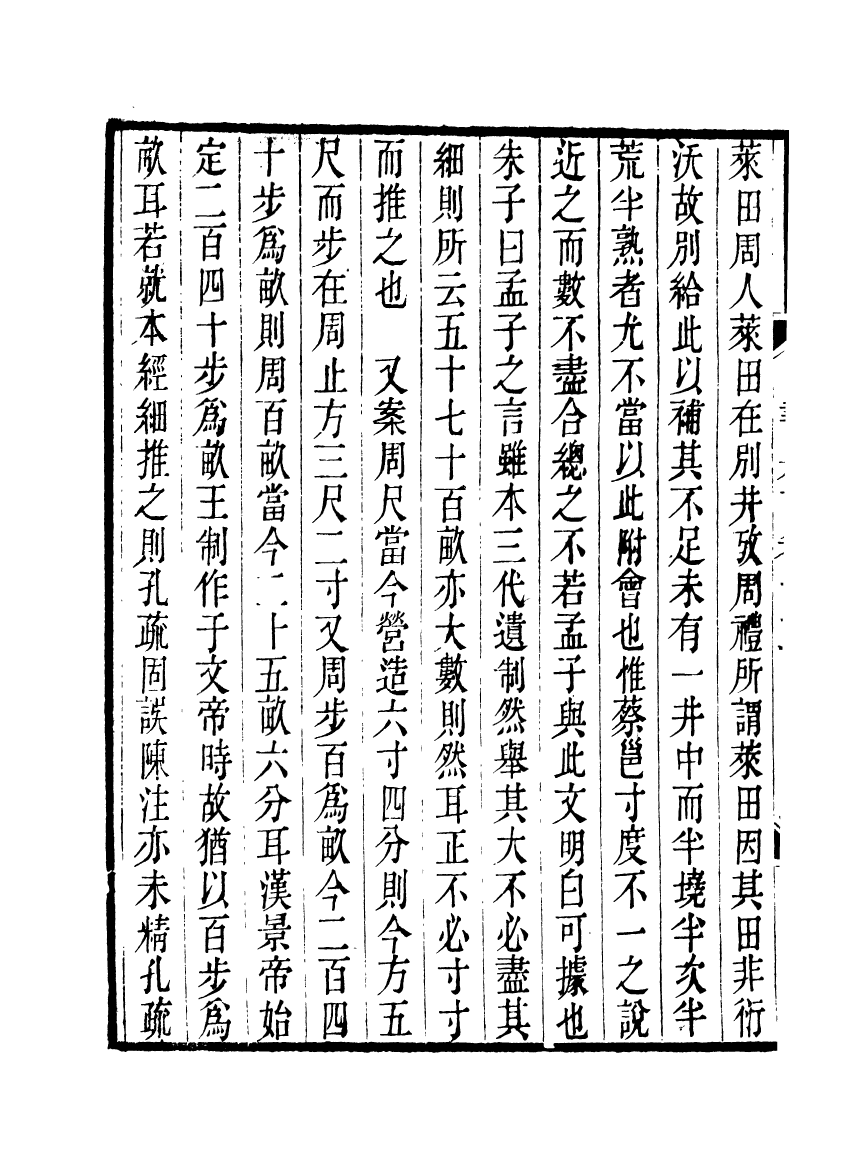 萊田周人萊田在別井攷周禮所謂萊田因其田非衍
沃故別給此以補其不足未有一井中而半墝半次半
荒半熟者尤不當以此附會也惟蔡邕寸度不一之說
近之而數不盡合總之不若孟子與此文明白可據也
朱子曰孟子之言雖本三代遺制然舉其大不必盡其
細則所云五十七十百畝亦大數則然耳正不必寸寸
而推之也　又案周尺當今營造六寸四分則今方五
尺而步在周止方三尺二寸又周步百爲畝今二百四
十步爲畝則周百畝當今二十五畝六分耳漢景帝始
定二百四十步爲畝王制作于文帝時故猶以百步爲
畝耳若就本經細推之則孔疏固誤陳注亦未精孔疏